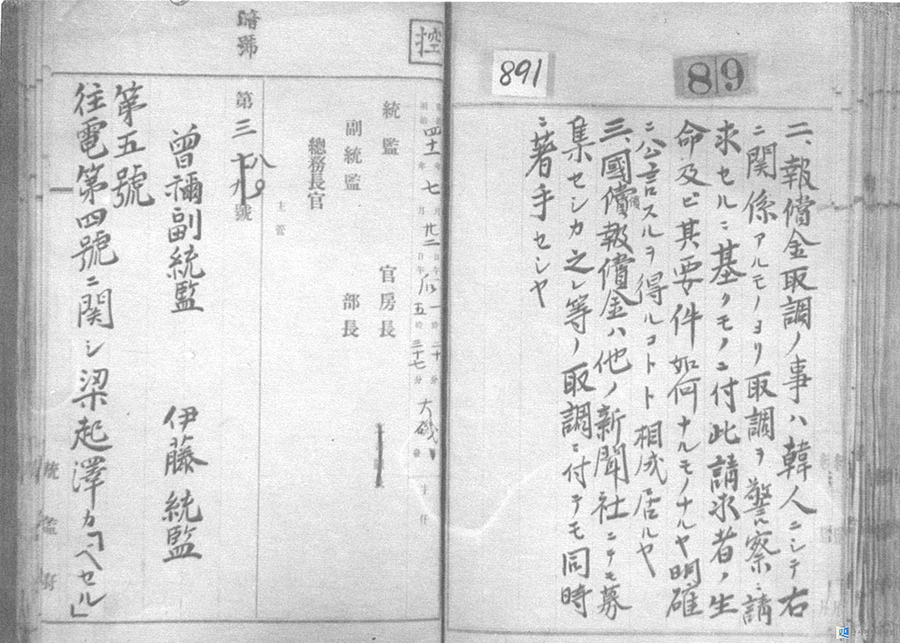 891
89
二、報償金取調ノ事ハ韓人ニシテ右
ニ関係アルモノヨリ取調ヲ警察ニ請
求セルニ基クモノニ付此請求者ノ生
命及ビ其要件如何ナルモノナルヤ明確
ニ公言スルヲ得ルコトト相成居ルヤ
三、國債報償金ハ他ノ新聞社ニテモ募
集セシカ之レ等ノ取調ニ付テモ同時
ニ著手セシヤ
控
暗號
四十一年七月廿二日
五時三十七分
大磯
統監
官房長
副統監
部長
總務長官
主管
第三十八號
曾禰副統監
伊藤統監
第五號
往電第四號ニ関シ梁起澤カ「ベセル」
統監府